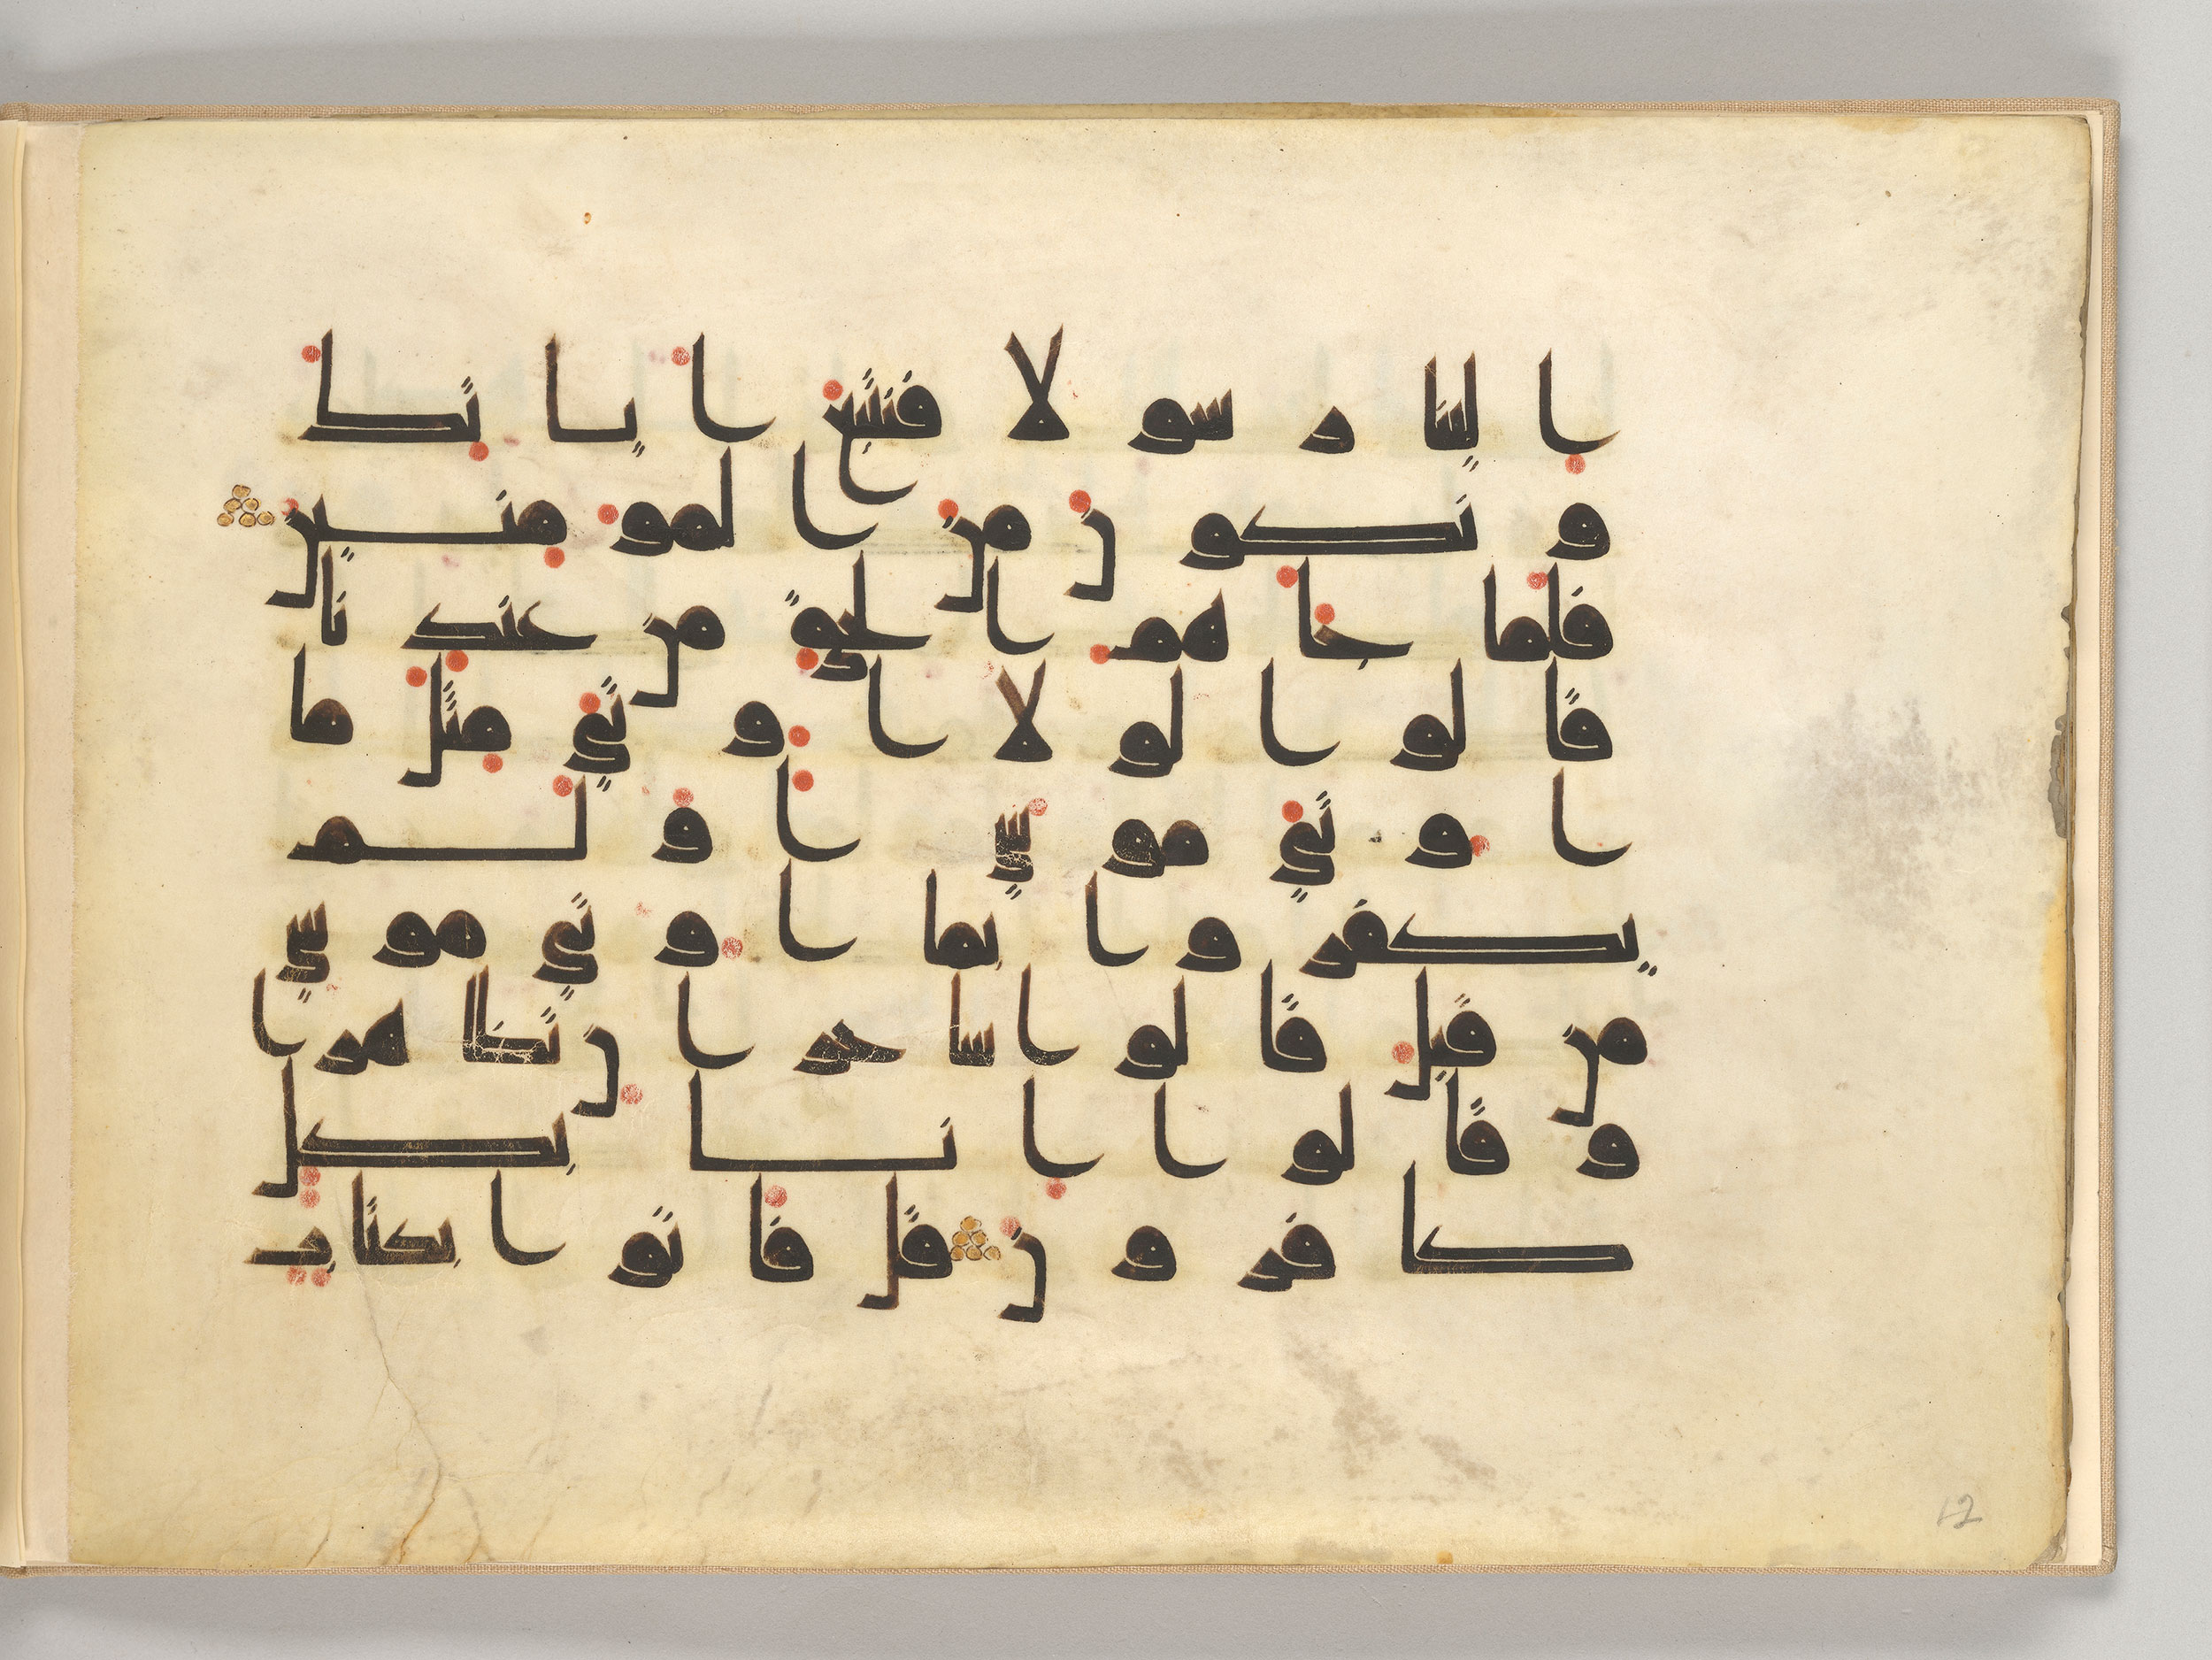 الينا رسولا فنتبع اياتك
ونكون من المومنين
فلما جاهم الحق من عندنا
قالوا لولا اوتي مثل ما
اوتي موسي اولم
يكفروا بما اوتي موسي
من قبل قالوا ساحران تظاهرا
وقالوا انا بكل
كافرون قل فاتوا بكتاب
12